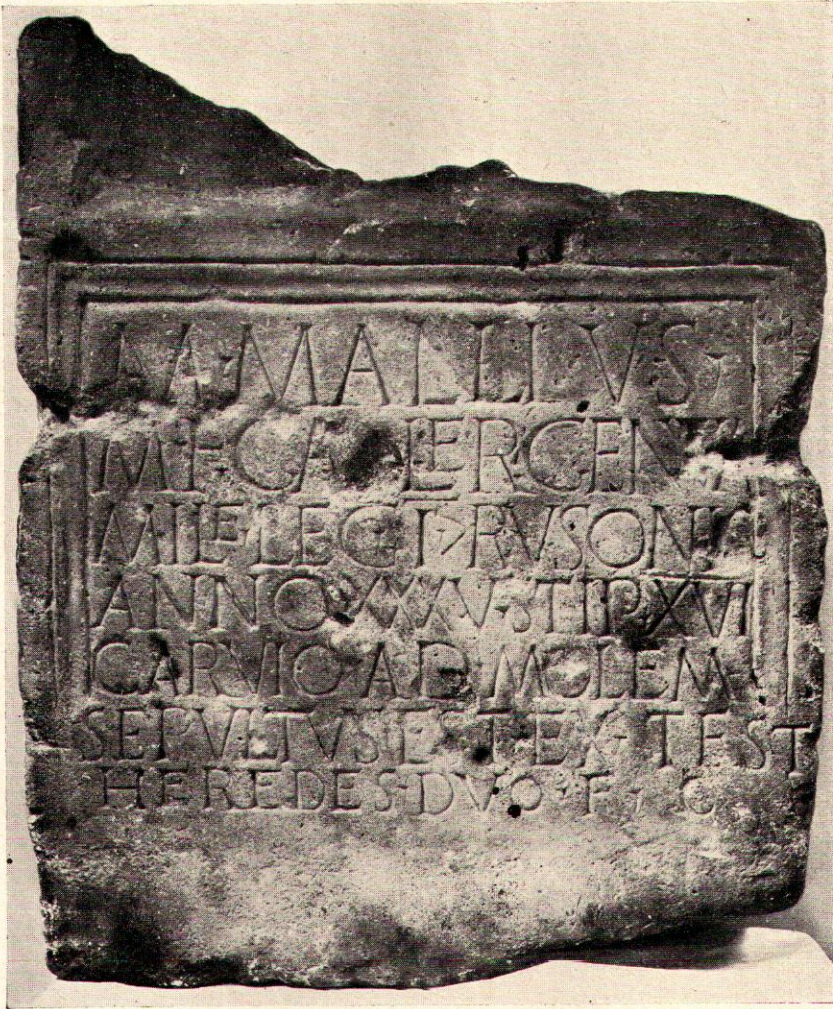 M·MALLIUS·
M·F·GALER·GENVA
MILE·LEG·I·>·RVSONIS
ANNO·XXXV·STIP·XVI
CARVIO·AD·MOLEM
SEPVLTVS·EST·EX·TEST
HEREDES·DVO·F·C